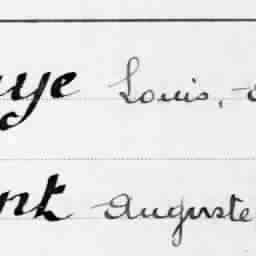 aye Louis,
nt Auguste